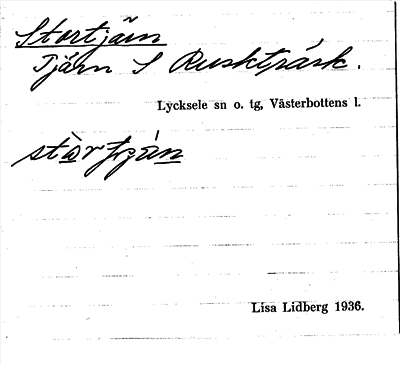 Stortjän
Tjärn S Ruskträsk.
Lycksele sn o. tg, Västerbottens l.
Lisa Lidberg 1936.